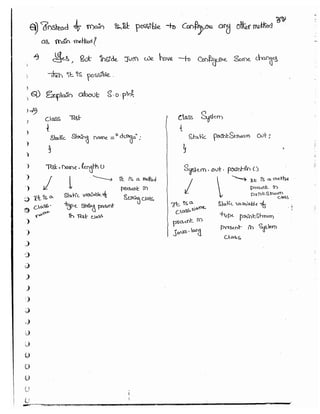 Q) Instead of main is it possible to Configure any other method
as main method?
A) Yes, But inside Jvm we have to Configure Some changes
then it is possible.
Q) Explain about S.o.pln
class Test
{
Static String name = "durga";
}
Test.name.length()
It is a class name
Static variable of type String present in Test class
It is a method present in String class
class System
{
Static printStream out;
}
System.out.println()
It is a class name present in Java.lang
Static variable of type printStream present in System class
It is a method present in PrintStream class